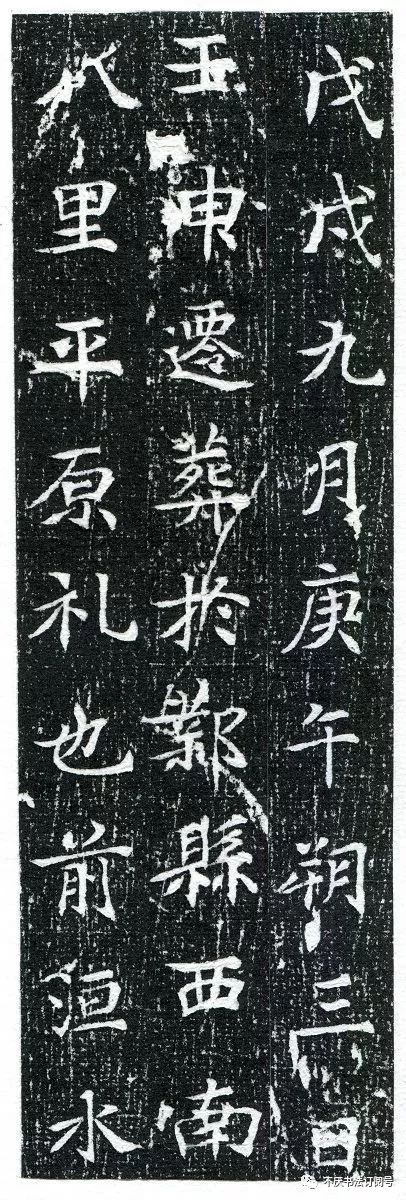 戊戌九月庚午朔三日
壬申遷葬於鄴縣西南
八里平原礼也前洹水
不厌书法订阅号